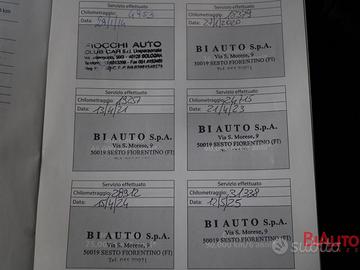 Servizio effettuato
Chilometraggio: 4953
Data: 29/1/14
FIOCCHI AUTO
CLUB CAR S.r.l. Unipersonale
40128 BOLOGNA
Servizio effettuato
Chilometraggio:
Data:
BI AUTO S.p.A.
Via S. Morese, 9
50019 SESTO FIORENTINO (FI)
Servizio effettuato
Chilometraggio: 19251
Data: 13/4/21
BI AUTO S.p.A.
Via S. Morese, 9
50019 SESTO FIORENTINO (FI)
Servizio effettuato
Chilometraggio: 24715
Data: 21/4/23
BI AUTO S.p.A.
Via S. Morese, 9
50019 SESTO FIORENTINO (FI)
Servizio effettuato
Chilometraggio: 28312
Data: 15/4/24
BI AUTO S.p.A.
Via S. Morese, 9
50019 SESTO FIORENTINO (FI)
Servizio effettuato
Chilometraggio: 31328
Data: 12/5/25
BI AUTO S.p.A.
Via S. Morese, 9
50019 SESTO FIORENTINO (FI)
BiAuto
subito